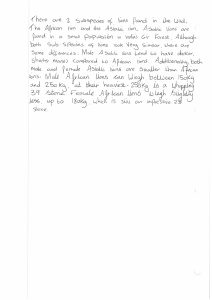 There are 2 Subspecies of lions found in the wild.
The African lion and the Asiatic lion. Asiatic lions are
found in a small population in Indias Gir Forest. Although
both Sub Species of lions look very Similar there are
Some differences. Male Asiatic lions tend to have darker,
Shorter manes compared to African lions. Additionally, both
Male and female Asiatic lions are Smaller than African
lions. Male African lions can weigh between 150kg
and 250kg, at their heaviest- 250kg is a whopping
39 Stone! Female African lions weigh Slightly
less, up to 180kg which is still an impressive 28
Stone.